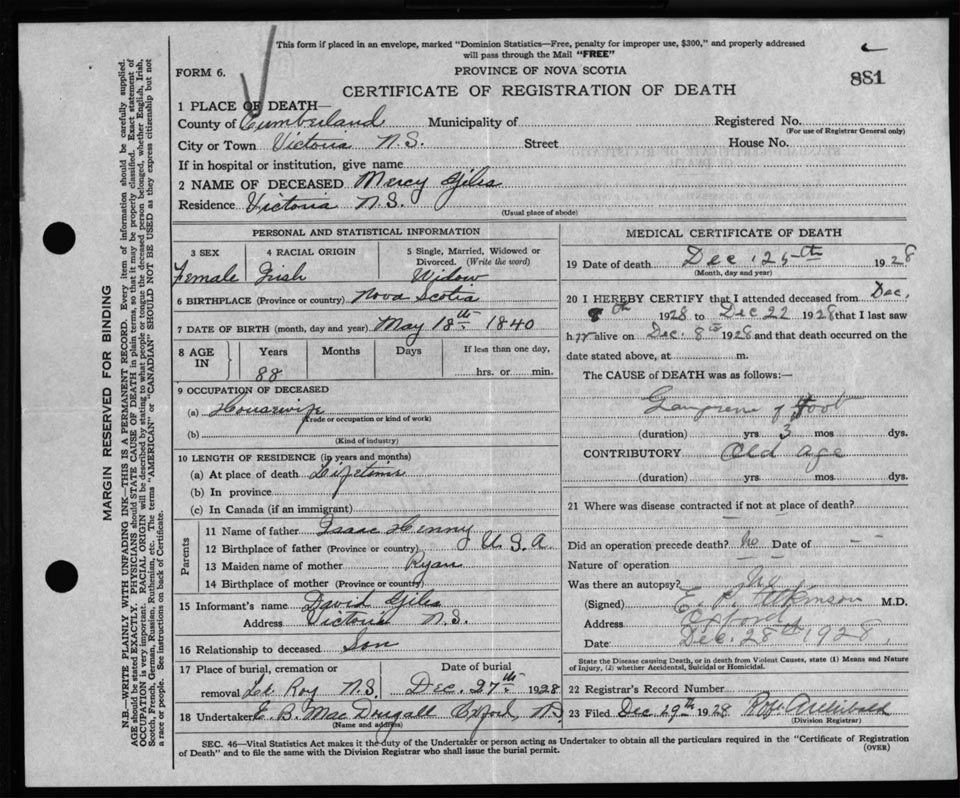 This form if placed in an envelope, marked "Dominion Statistics—Free, penalty for improper use, $300," and properly addressed
will pass through the Mail "FREE"
FORM 6.
PROVINCE OF NOVA SCOTIA
881
CERTIFICATE OF REGISTRATION OF DEATH
1 PLACE OF DEATH—
County of Cumberland Municipality of Registered No.
(For use of Registrar General only)
City or Town Victoria N.S. Street House No.
If in hospital or institution, give name
2 NAME OF DECEASED Mercy Giles
Residence Victoria N.S.
(Usual place of abode)
PERSONAL AND STATISTICAL INFORMATION
3 SEX 4 RACIAL ORIGIN 5 Single, Married, Widowed or
Divorced. (Write the word)
Female Irish Widow
6 BIRTHPLACE (Province or country) Nova Scotia
7 DATE OF BIRTH (month, day and year) May 18th 1840
8 AGE IN Years Months Days If less than one day,
88 hrs. or min.
9 OCCUPATION OF DECEASED
(a) Housewife
(Trade or occupation or kind of work)
(b)
(Kind of industry)
10 LENGTH OF RESIDENCE (in years and months)
(a) At place of death Lifetime
(b) In province
(c) In Canada (if an immigrant)
Parents
11 Name of father Isaac Henny
12 Birthplace of father (Province or country) U.S.A.
13 Maiden name of mother Ryan
14 Birthplace of mother (Province or country)
15 Informant's name David Giles
Address Victoria N.S.
16 Relationship to deceased Son
17 Place of burial, cremation or Date of burial
removal Le Roy N.S. Dec. 27th 1928
18 Undertaker E. B. MacDougall Oxford, N.S.
(Name and address)
MEDICAL CERTIFICATE OF DEATH
19 Date of death Dec. 25th 1928
(Month, day and year)
20 I HEREBY CERTIFY that I attended deceased from Dec.
8th 1928 to Dec 22 1928 that I last saw
her alive on Dec. 8th 1928 and that death occurred on the
date stated above, at m.
The CAUSE of DEATH was as follows:—
Gangrene of Foot
(duration) yrs 3 mos dys.
CONTRIBUTORY Old age
(duration) yrs mos dys.
21 Where was disease contracted if not at place of death?
Did an operation precede death? No Date of - -
Nature of operation
Was there an autopsy? No
(Signed) E. P. Atkinson M.D.
Address Oxford
Date Dec. 28th 1928.
State the Disease causing Death, or in death from Violent Causes, state (1) Means and Nature
of Injury, (2) whether Accidental, Suicidal or Homicidal.
22 Registrar's Record Number
23 Filed Dec 29th 1928 Archibald
(Division Registrar)
SEC. 46—Vital Statistics Act makes it the duty of the Undertaker or person acting as Undertaker to obtain all the particulars required in the "Certificate of Registration
of Death" and to file the same with the Division Registrar who shall issue the burial permit.
(OVER)
MARGIN RESERVED FOR BINDING
N.B.—WRITE PLAINLY WITH UNFADING INK—THIS IS A PERMANENT RECORD. Every item of information should be carefully supplied.
AGE should be stated EXACTLY. PHYSICIANS should STATE CAUSE OF DEATH in plain terms, so that it may be properly classified. Exact statement of
OCCUPATION is very important. RACIAL ORIGIN will be described by stating to what people or tongue the deceased person belonged, whether English, Irish,
Scotch, French, German, Russian, Ruthenian, etc. The terms "AMERICAN" or "CANADIAN" SHOULD NOT BE USED as they express citizenship but not
a race or people. See instructions on back of Certificate.